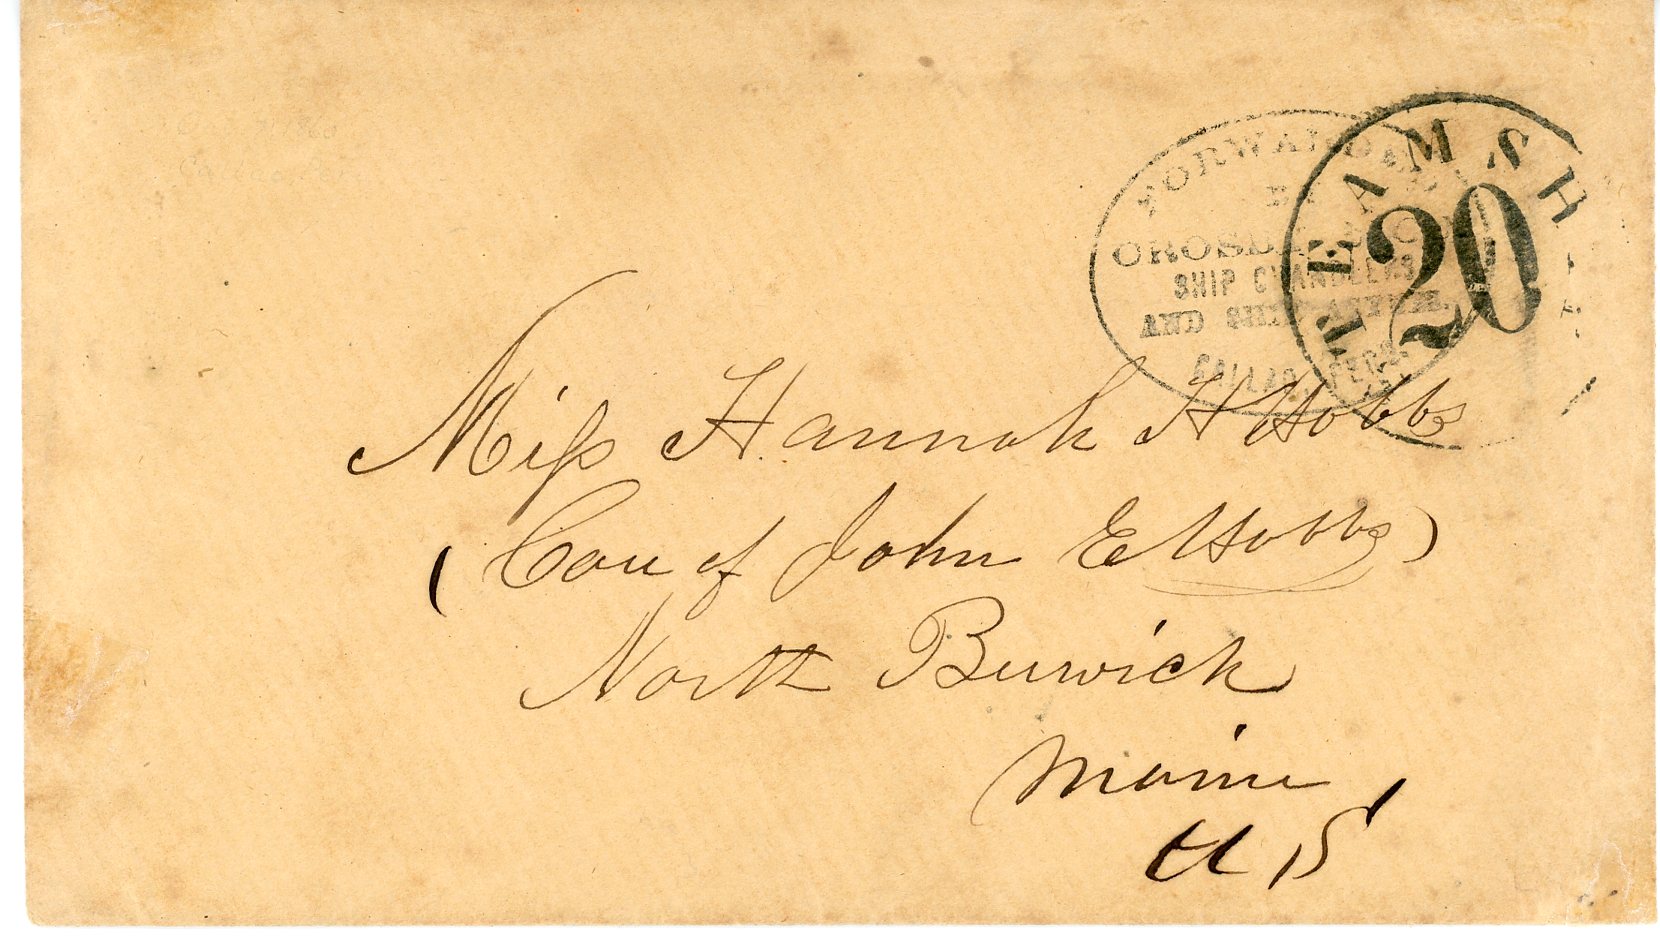 FORWARDED
BY
CROSBY & CO
SHIP CHANDLERS
AND SHIP
CALLAO, PERU.
STEAMSH
20
Miss Hannah H Hobbs
(Cou of John E Hobbs)
North Berwick
Maine
U, S